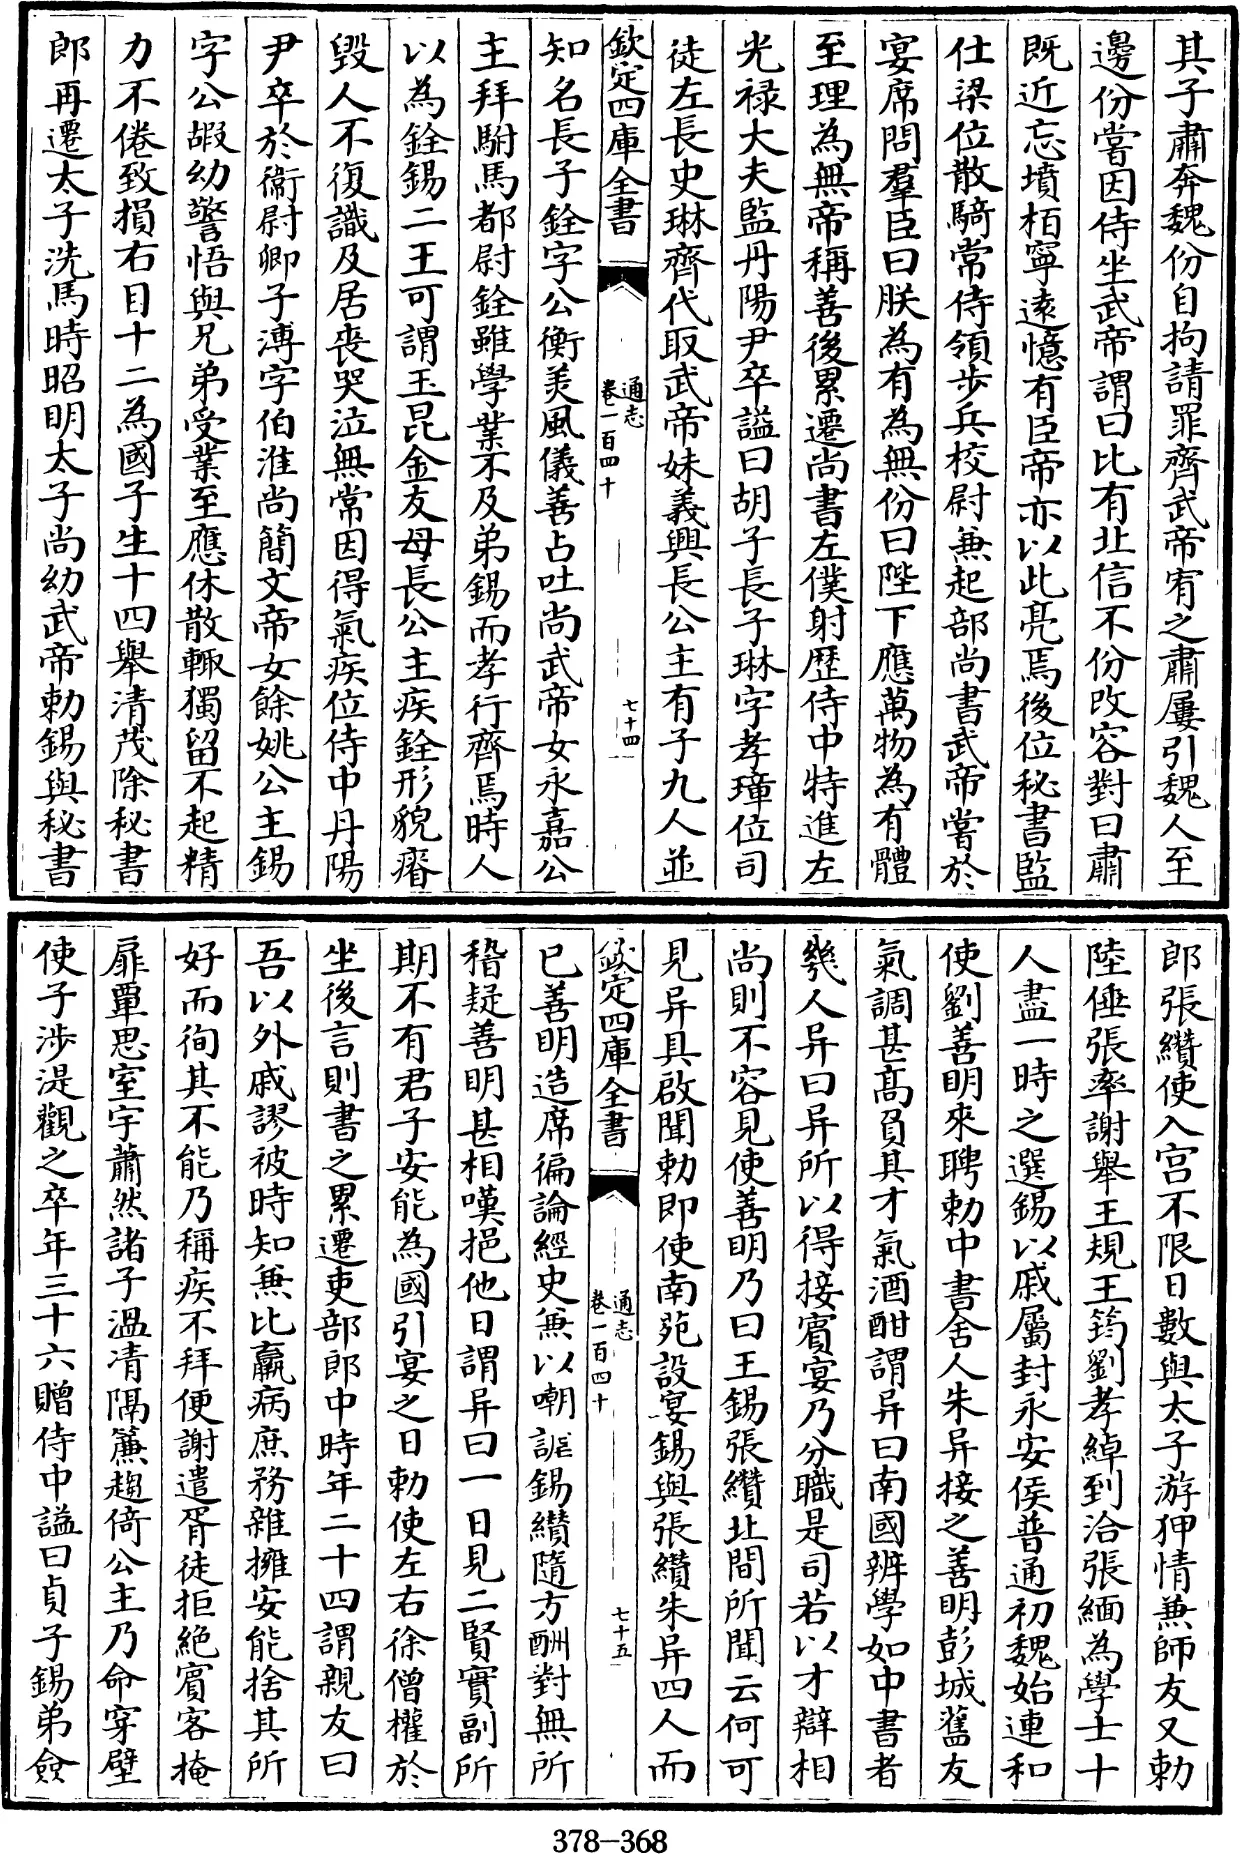 其子肅奔魏份自拘請罪齊武帝宥之肅屢引魏人至
邊份嘗因侍坐武帝謂曰比有北信不份改容對曰肅
既近忘墳栢寧遠憶有臣帝亦以此亮焉後位秘書監
仕梁位散騎常侍領步兵校尉兼起部尚書武帝嘗於
宴席問羣臣曰朕為有為無份曰陛下應萬物為有體
至理為無帝稱善後累遷尚書左僕射歴侍中特進左
光禄大夫監丹陽尹卒謚曰胡子長子琳字孝璋位司
徒左長史琳齊代取武帝妹義興長公主有子九人並
欽定四庫全書
通志
卷一百四十
七十四
知名長子銓字公衡美風儀善占吐尚武帝女永嘉公
主拜駙馬都尉銓雖學業不及弟錫而孝行齊焉時人
以為銓錫二王可謂玉昆金友母長公主疾銓形貌瘠
毀人不復識及居喪哭泣無常因得氣疾位侍中丹陽
尹卒於衛尉卿子溥字伯淮尚簡文帝女餘姚公主錫
字公嘏幼警悟與兄弟受業至應休散輙獨留不起精
力不倦致損右目十二為國子生十四舉清茂除秘書
郎再遷太子洗馬時昭明太子尚幼武帝勅錫與秘書
郎張纘使入宫不限日數與太子游狎情兼師友又勅
陸倕張率謝舉王規王筠劉孝綽到洽張緬為學士十
人盡一時之選錫以戚屬封永安侯普通初魏始連和
使劉善明來聘勅中書舍人朱异接之善明彭城舊友
氣調甚髙負其才氣酒酣謂异曰南國辨學如中書者
幾人异曰异所以得接賓宴乃分職是司若以才辯相
尚則不容見使善明乃曰王錫張纘北間所聞云何可
見异具啟聞勅即使南苑設宴錫與張纘朱异四人而
欽定四庫全書
通志
卷一百四十
七十五
已善明造席徧論經史兼以嘲謔錫纘隨方酬對無所
稽疑善明甚相嘆挹他日謂异曰一日見二賢實副所
期不有君子安能為國引宴之日勅使左右徐僧權於
坐後言則書之累遷吏部郎中時年二十四謂親友曰
吾以外戚謬被時知兼比羸病庶務雜擁安能捨其所
好而徇其不能乃稱疾不拜便謝遣胥徒拒絶賓客掩
扉覃思室宇蕭然諸子溫凊隔簾趨倚公主乃命穿壁
使子涉湜觀之卒年三十六贈侍中謚曰貞子錫弟僉
378-368